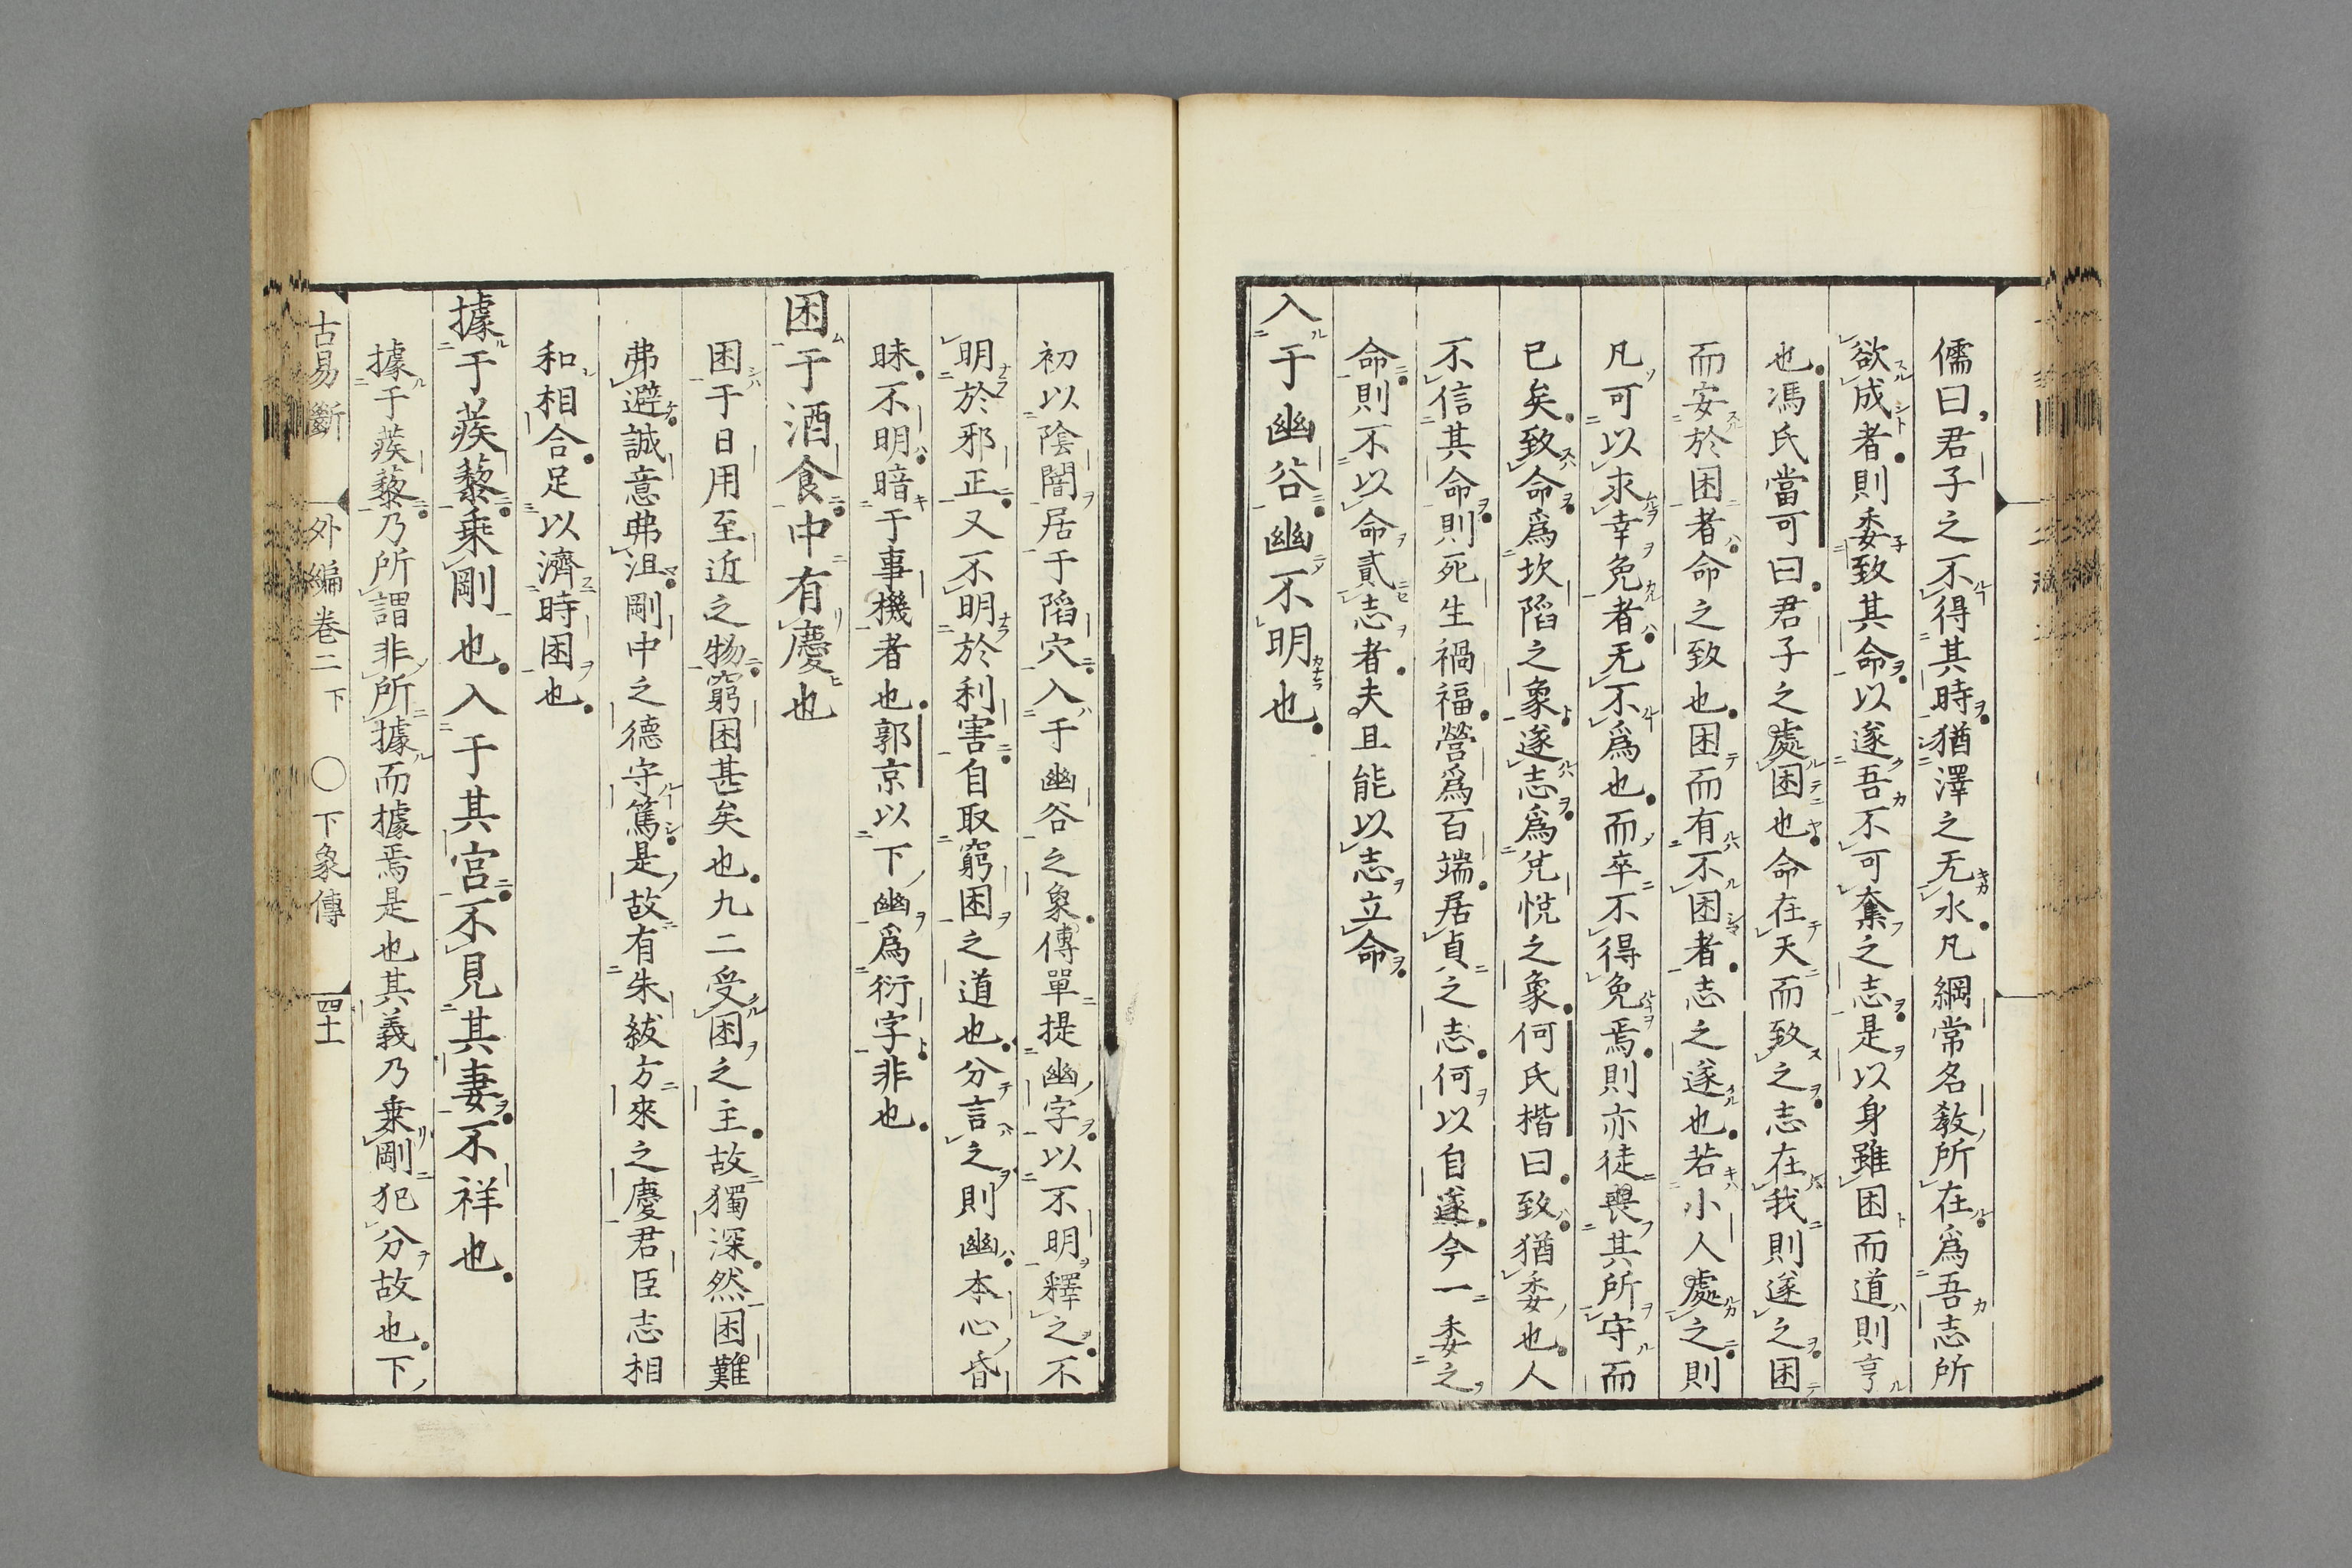 儒曰君子之不得其時猶澤之无水凡綱常名教所在爲吾志所
欲成者則委致其命以遂吾不可奪之志是以身雖困而道則亨
也馮氏當可曰君子之處困也命在天而致之志在我則遂之困
而安於困者命之致也困而有不困者志之遂也若小人處之則
凡可以求幸免者无不爲也而卒不得免焉則亦徒喪其所守而
已矣致命爲坎陷之象遂志爲兌悅之象何氏楷曰致猶委也人
不信其命則死生禍福營爲百端居貞之志何以自遂今一委之
命則不以命貳志者夫且能以志立命
入于幽谷幽不明也
初以陰闇居于陷穴入于幽谷之象傳單提幽字以不明釋之不
明於邪正又不明於利害自取窮困之道也分言之則幽本心昏
昧不明暗于事機者也郭京以下幽爲衍字非也
困于酒食中有慶也
困于日用至近之物窮困甚矣也九二受困之主故獨深然困難
弗避誠意弗沮剛中之德守篤是故有朱紱方來之慶君臣志相
和相合足以濟時困也
據于蒺藜乘剛也入于其宮不見其妻不祥也
據于蒺藜乃所謂非所據而據焉是也其義乃乘剛犯分故也下
古易斷 外編卷二下 〇下象傳 四十